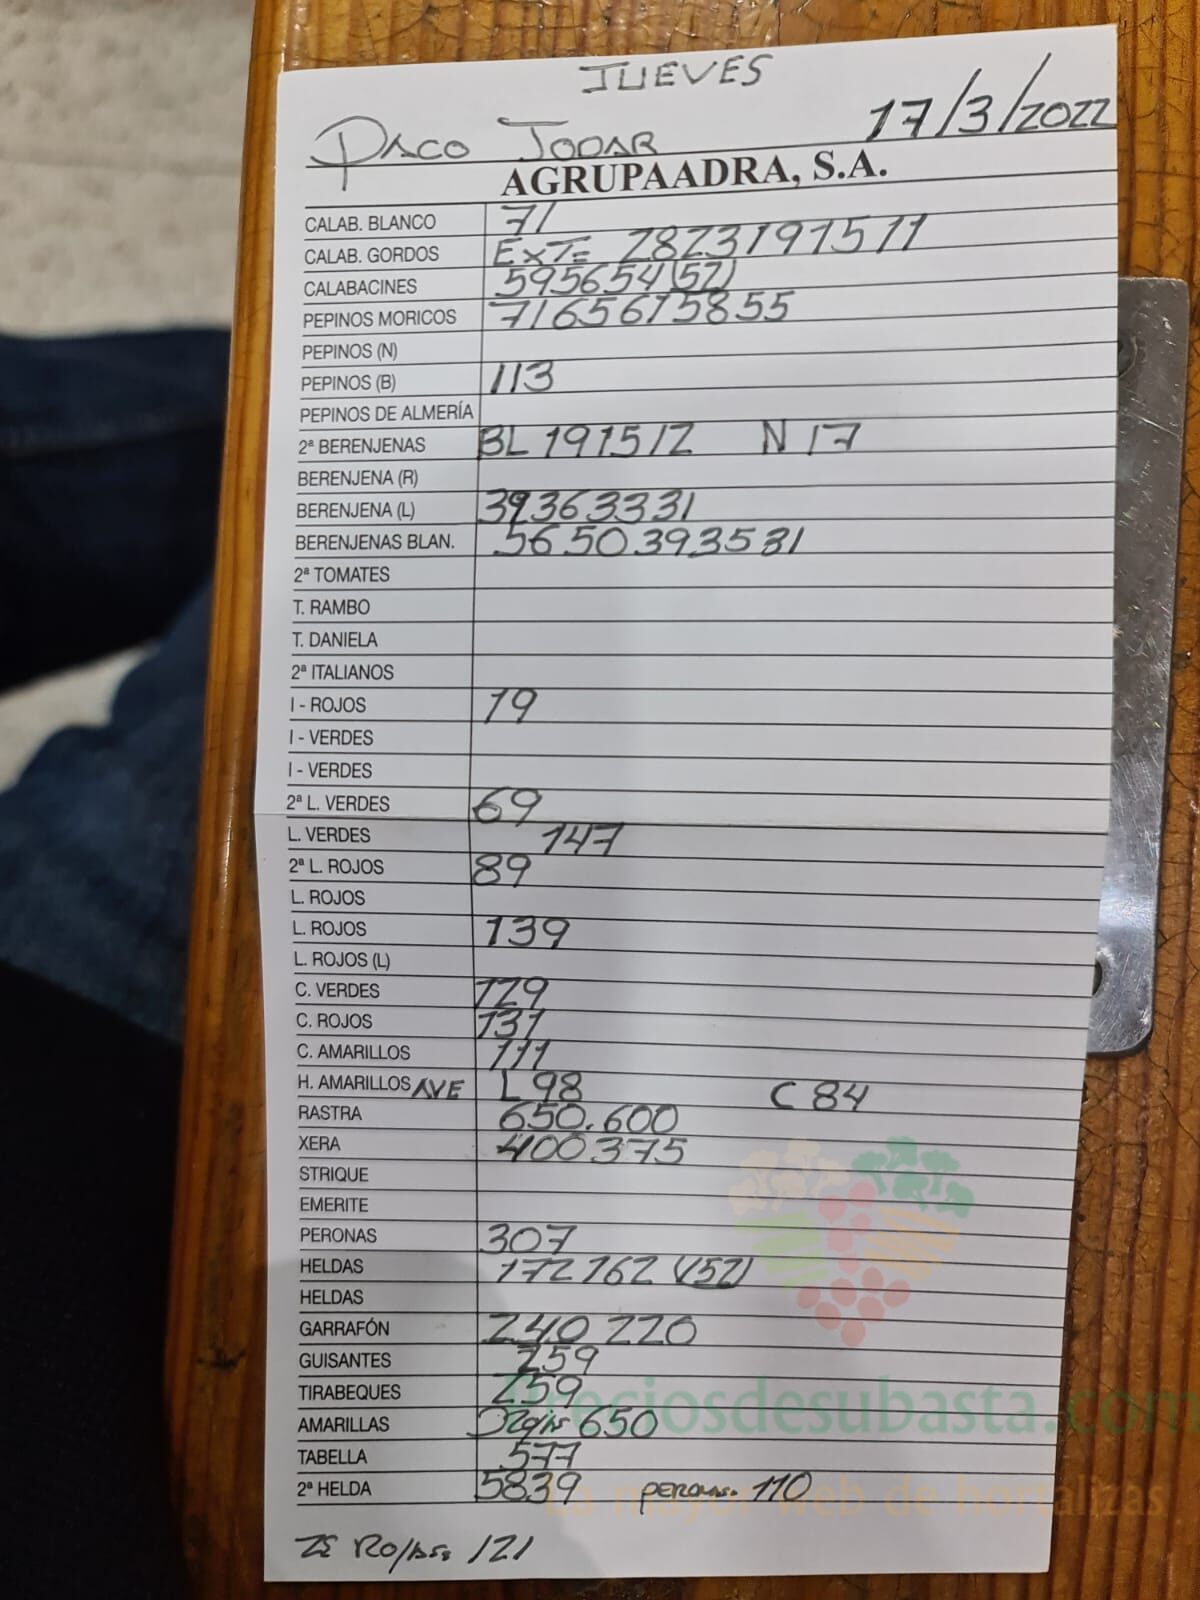 JUEVES
PACO JODAR 17/3/2022
AGRUPAADRA, S.A.
CALAB. BLANCO 71
CALAB. GORDOS EXT= 2823191511
CALABACINES 595654(52)
PEPINOS MORICOS 7165615855
PEPINOS (N)
PEPINOS (B) 113
PEPINOS DE ALMERÍA
2ª BERENJENAS BL 191512 N 17
BERENJENA (R)
BERENJENA (L) 39363331
BERENJENAS BLAN. 5650393531
2ª TOMATES
T. RAMBO
T. DANIELA
2ª ITALIANOS
I - ROJOS 19
I - VERDES
I - VERDES
2ª L. VERDES 69
L. VERDES 147
2ª L. ROJOS 89
L. ROJOS
L. ROJOS 139
L. ROJOS (L)
C. VERDES 129
C. ROJOS 131
C. AMARILLOS 111
H. AMARILLOS AVE L 98 C 84
RASTRA 650.600
XERA 400375
STRIQUE
EMERITE
PERONAS 307
HELDAS 172 162 (152)
HELDAS
GARRAFÓN 240 220
GUISANTES 259
TIRABEQUES 259
AMARILLAS 650
TABELLA 577
2ª HELDA 5839 PERONAS. 110
121
Preciosdesubasta.com
La mayor web de hortalizas